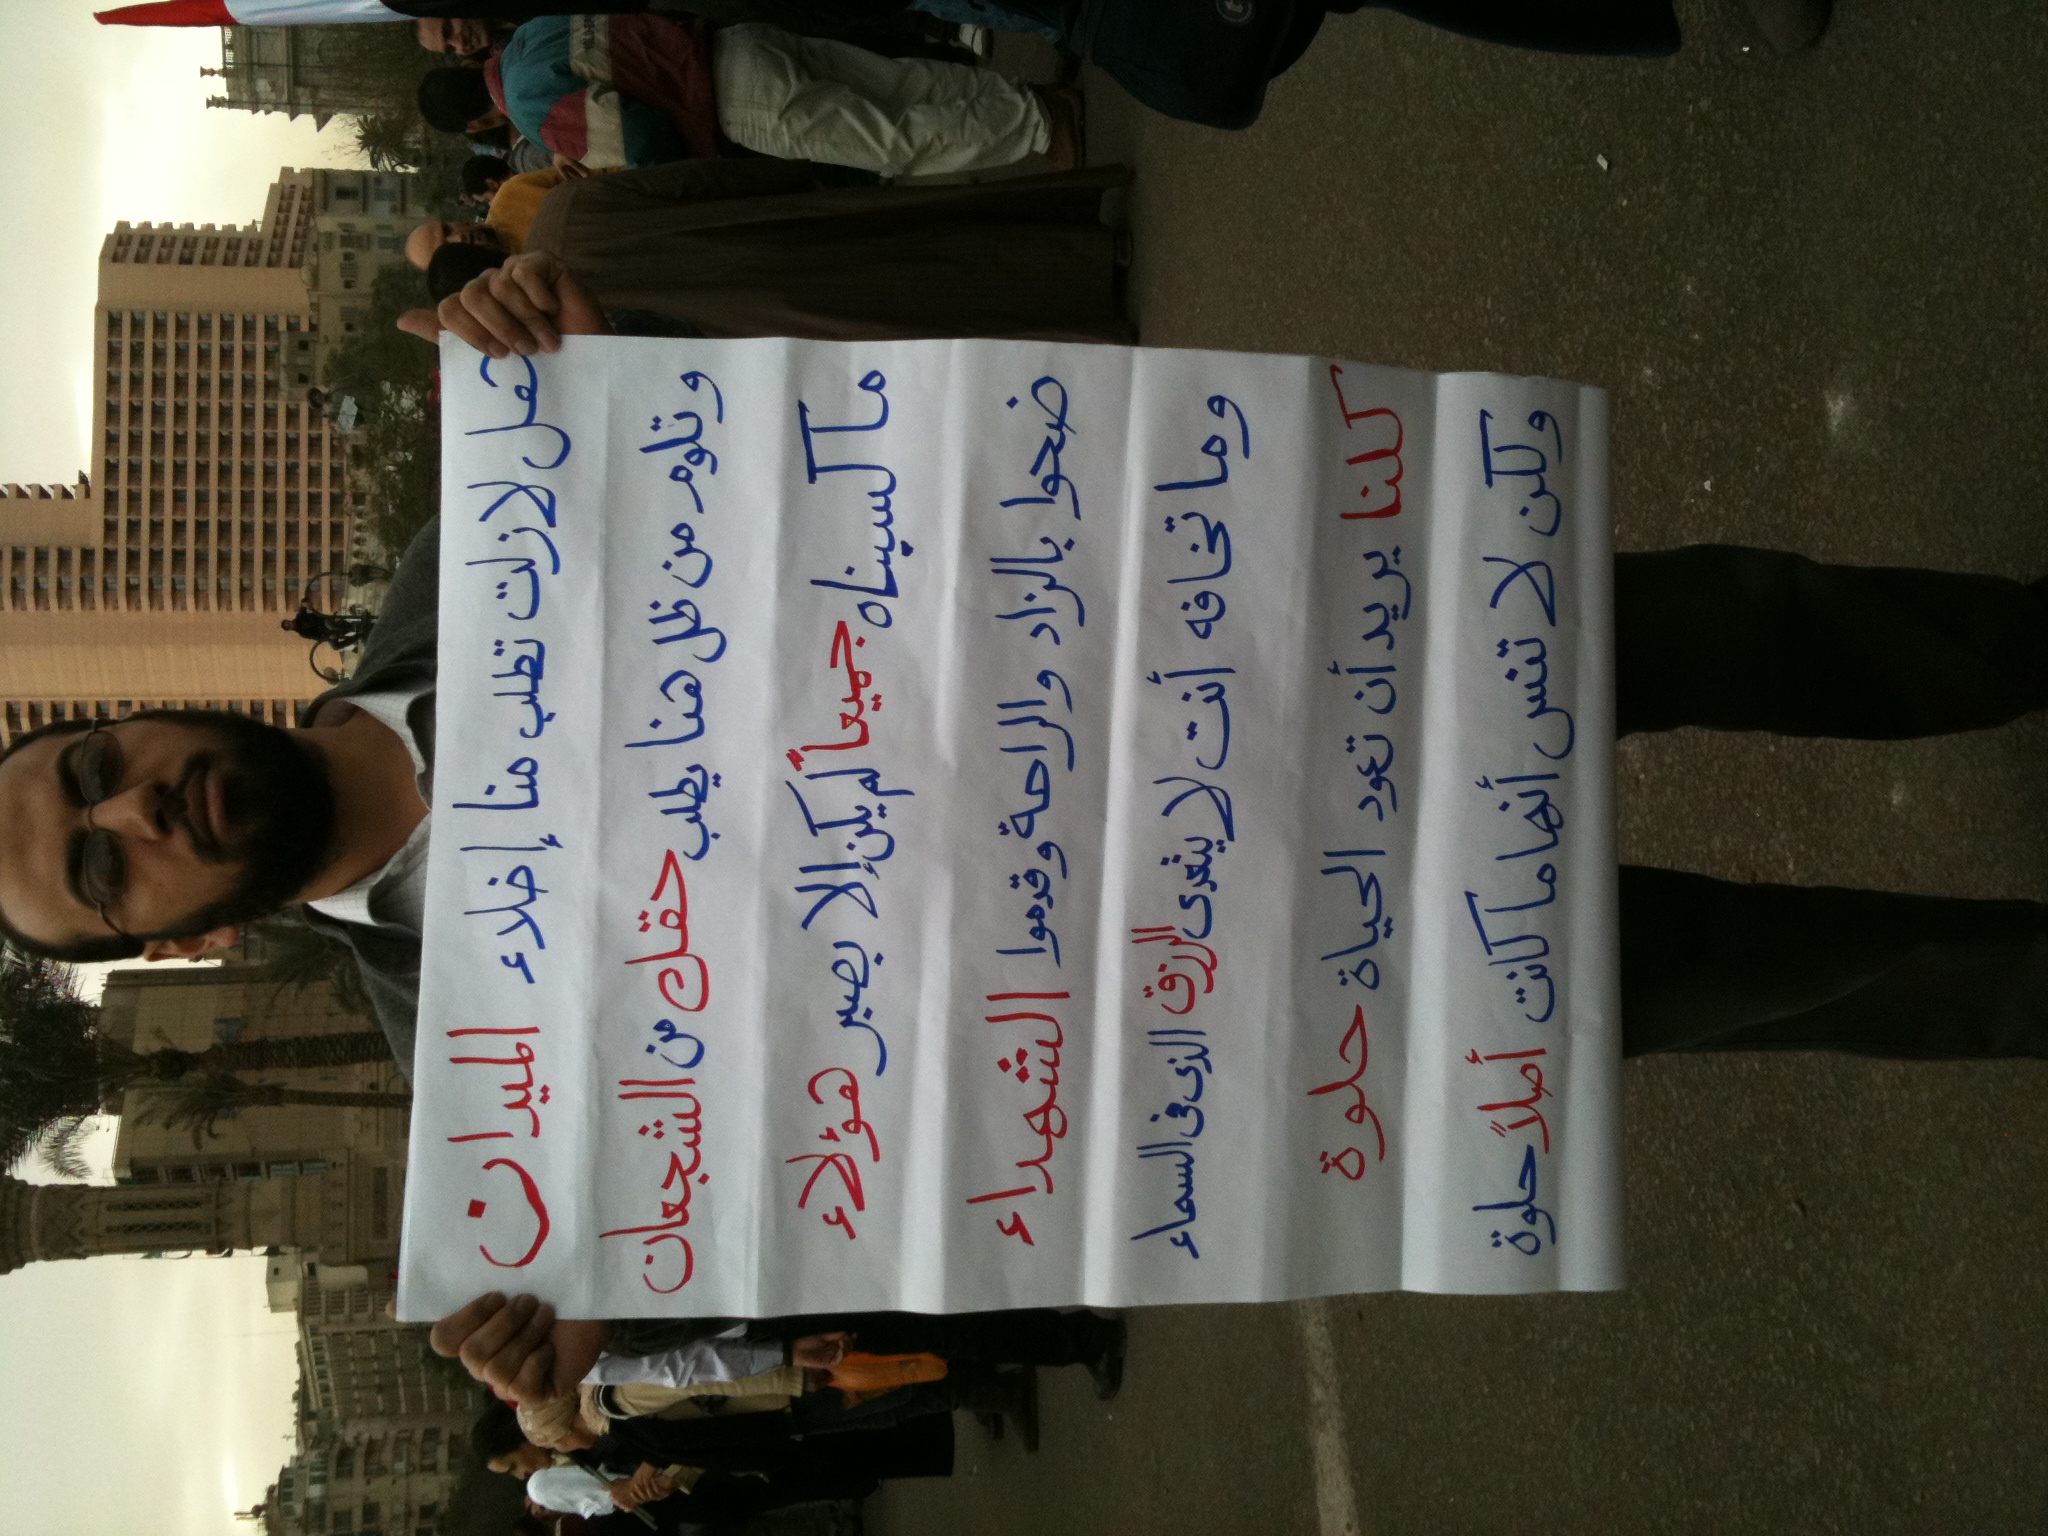 لازلت تطلب منا إخلاء الميدان
وتلوم من ظل هنا يطلب حقك من الشجعان
ما كسبناه جميعاً لم يكن إلا بصبر هؤلاء
ضحوا بالزاد والراحة وقدموا الشهداء
وما تخافه أنت لا يغرى الرزق الذى فى السماء
كلنا يريد أن تعود الحياة حلوة
ولكن لا تنس أنها ما كانت أصلاً حلوة